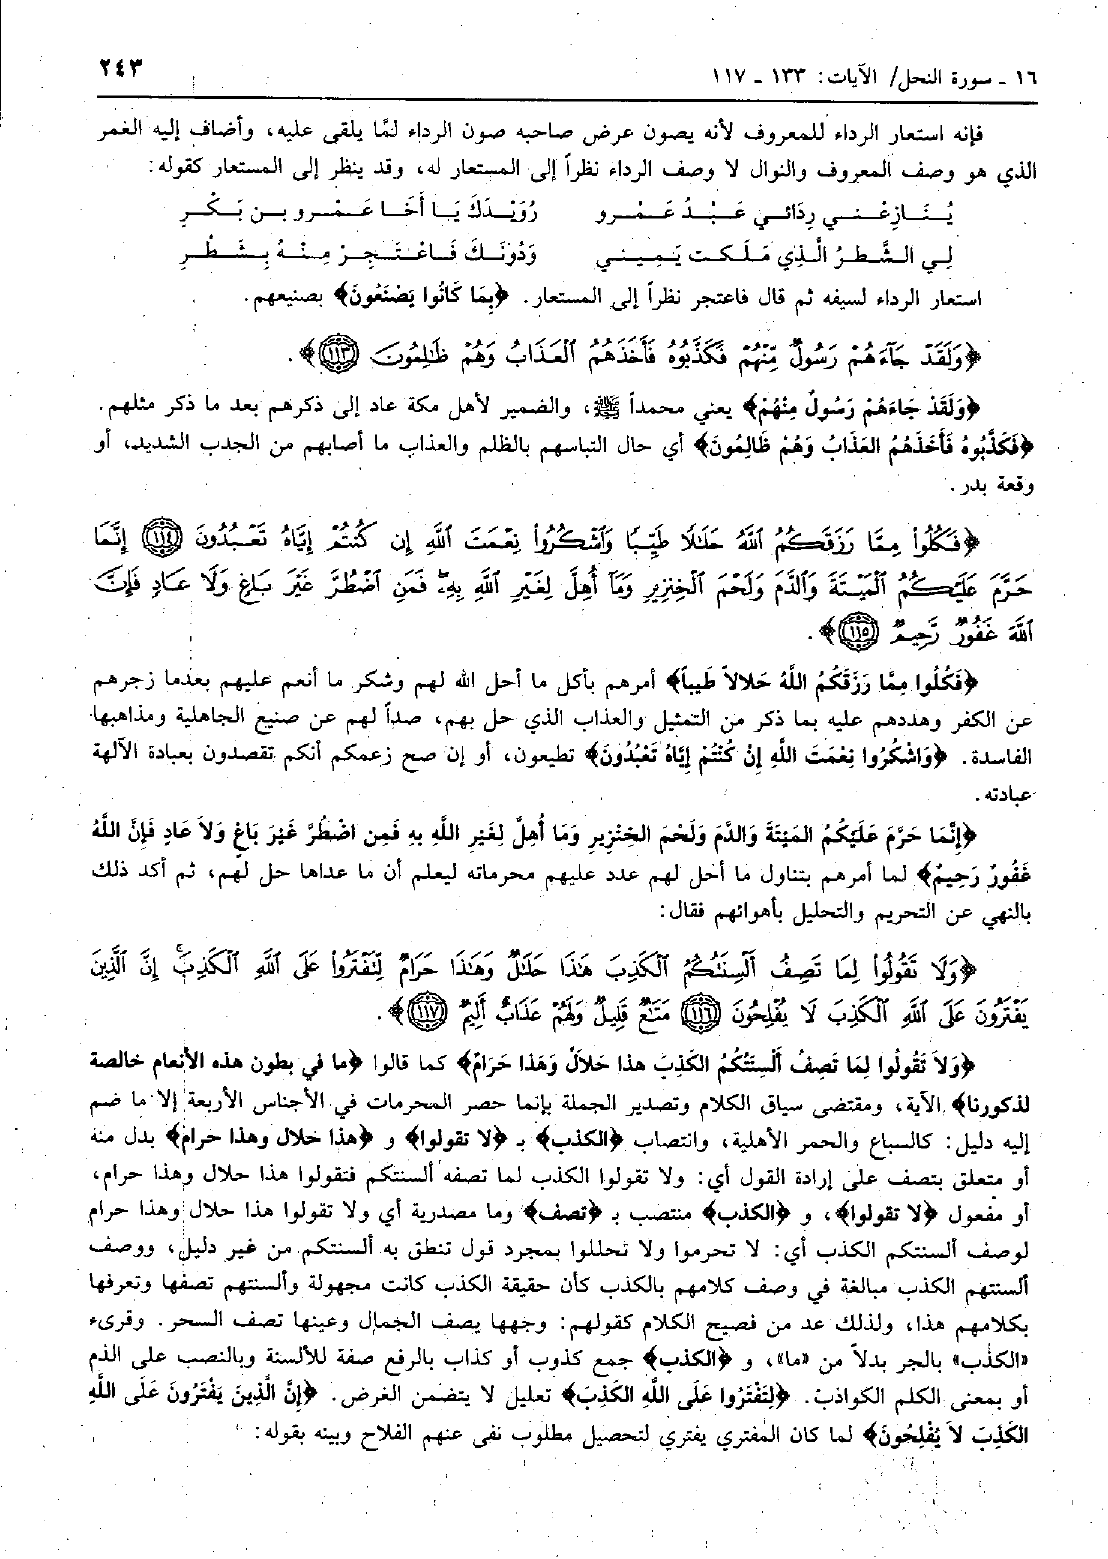 ١٦ - سورة النحل/ الآيات: ١٣٣ - ١١٧ ٢٤٣
فإنه استعار الرداء للمعروف لأنه يصون عرض صاحبه صون الرداء لمَّا يلقى عليه، وأضاف إليه الغمر
الذي هو وصف المعروف والنوال لا وصف الرداء نظراً إلى المستعار له، وقد ينظر إلى المستعار كقوله:
يُنَازِعُنِي رِدَائِي عَبْدُ عَمْرو رُوَيْدَكَ يَا أَخَا عَمْرو بن بَكْرِ
لِي الشَّطرُ الَّذِي مَلَكت يَمِيني وَدُونَكَ فَاعْتَجِرْ مِنْهُ بِشَطْرِ
استعار الرداء لسيفه ثم قال فاعتجر نظراً إلى المستعار. ﴿بِمَا كَانُوا يَصْنَعُونَ﴾ بصنيعهم.
﴿وَلَقَدْ جَآءَهُمْ رَسُولٌ مِّنْهُمْ فَكَذَّبُوهُ فَأَخَذَهُمُ ٱلْعَذَابُ وَهُمْ ظَٰلِمُونَ ١١٣﴾.
﴿وَلَقَدْ جَاءَهُمْ رَسُولٌ مِنْهُمْ﴾ يعني محمداً ﷺ، والضمير لأهل مكة عاد إلى ذكرهم بعد ما ذكر مثلهم.
﴿فَكَذَّبُوهُ فَأَخَذَهُمُ العَذَابُ وَهُمْ ظَالِمُونَ﴾ أي حال التباسهم بالظلم والعذاب ما أصابهم من الجدب الشديد، أو
وقعة بدر.
﴿فَكُلُوا۟ مِمَّا رَزَقَكُمُ ٱللَّهُ حَلَٰلًا طَيِّبًا وَٱشْكُرُوا۟ نِعْمَتَ ٱللَّهِ إِن كُنتُمْ إِيَّاهُ تَعْبُدُونَ ١١٤ إِنَّمَا
حَرَّمَ عَلَيْكُمُ ٱلْمَيْتَةَ وَٱلدَّمَ وَلَحْمَ ٱلْخِنزِيرِ وَمَآ أُهِلَّ لِغَيْرِ ٱللَّهِ بِهِۦ فَمَنِ ٱضْطُرَّ غَيْرَ بَاغٍ وَلَا عَادٍ فَإِنَّ
ٱللَّهَ غَفُورٌ رَّحِيمٌ ١١٥﴾.
﴿فَكُلُوا مِمَّا رَزَقَكُمُ اللَّهُ حَلالاً طَيباً﴾ أمرهم بأكل ما أحل الله لهم وشكر ما أنعم عليهم بعدما زجرهم
عن الكفر وهددهم عليه بما ذكر من التمثيل والعذاب الذي حل بهم، صداً لهم عن صنيع الجاهلية ومذاهبها
الفاسدة. ﴿وَاشْكُرُوا نِعْمَتَ اللَّهِ إِنْ كُنْتُمْ إِيَّاهُ تَعْبُدُونَ﴾ تطيعون، أو إن صح زعمكم أنكم تقصدون بعبادة الآلهة
عبادته.
﴿إِنَّمَا حَرَّمَ عَلَيْكُمُ المَيْتَةَ وَالدَّمَ وَلَحْمَ الخِنْزِيرِ وَمَا أُهِلَّ لِغَيْرِ اللَّهِ بِهِ فَمَنِ اضْطُرَّ غَيْرَ بَاغٍ وَلاَ عَادٍ فَإِنَّ اللَّهَ
غَفُورٌ رَحِيمٌ﴾ لما أمرهم بتناول ما أحل لهم عدد عليهم محرماته ليعلم أن ما عداها حل لهم، ثم أكد ذلك
بالنهي عن التحريم والتحليل بأهوائهم فقال:
﴿وَلَا تَقُولُوا۟ لِمَا تَصِفُ أَلْسِنَتُكُمُ ٱلْكَذِبَ هَٰذَا حَلَٰلٌ وَهَٰذَا حَرَامٌ لِّتَفْتَرُوا۟ عَلَى ٱللَّهِ ٱلْكَذِبَ إِنَّ ٱلَّذِينَ
يَفْتَرُونَ عَلَى ٱللَّهِ ٱلْكَذِبَ لَا يُفْلِحُونَ ١١٦ مَتَٰعٌ قَلِيلٌ وَلَهُمْ عَذَابٌ أَلِيمٌ ١١٧﴾.
﴿وَلاَ تَقُولُوا لِمَا تَصِفُ أَلْسِنَتُكُمُ الكَذِبَ هذا حَلاَلٌ وَهَذا حَرَامٌ﴾ كما قالوا ﴿ما في بطون هذه الأنعام خالصة
لذكورنا﴾ الآية، ومقتضى سياق الكلام وتصدير الجملة بإنما حصر المحرمات في الأجناس الأربعة إلا ما ضم
إليه دليل: كالسباع والحمر الأهلية، وانتصاب ﴿الكذب﴾ بـ ﴿لا تقولوا﴾ و ﴿هذا حلال وهذا حرام﴾ بدل منه
أو متعلق بتصف على إرادة القول أي: ولا تقولوا الكذب لما تصفه ألسنتكم فتقولوا هذا حلال وهذا حرام،
أو مفعول ﴿لا تقولوا﴾، و ﴿الكذب﴾ منتصب بـ ﴿تصف﴾ وما مصدرية أي ولا تقولوا هذا حلال وهذا حرام
لوصف ألسنتكم الكذب أي: لا تحرموا ولا تحللوا بمجرد قول تنطق به ألسنتكم من غير دليل، ووصف
ألسنتهم الكذب مبالغة في وصف كلامهم بالكذب كأن حقيقة الكذب كانت مجهولة وألسنتهم تصفها وتعرفها
بكلامهم هذا، ولذلك عد من فصيح الكلام كقولهم: وجهها يصف الجمال وعينها تصف السحر. وقرىء
«الكَذِب» بالجر بدلاً من «ما»، و ﴿الكذب﴾ جمع كذوب أو كذاب بالرفع صفة للألسنة وبالنصب على الذم
أو بمعنى الكلم الكواذب. ﴿لِتَفْتَرُوا عَلَى اللَّهِ الكَذِبَ﴾ تعليل لا يتضمن الغرض. ﴿إِنَّ الَّذِينَ يَفْتَرُونَ عَلَى اللَّهِ
الكَذِبَ لاَ يُفْلِحُونَ﴾ لما كان المفتري يفتري لتحصيل مطلوب نفى عنهم الفلاح وبينه بقوله: